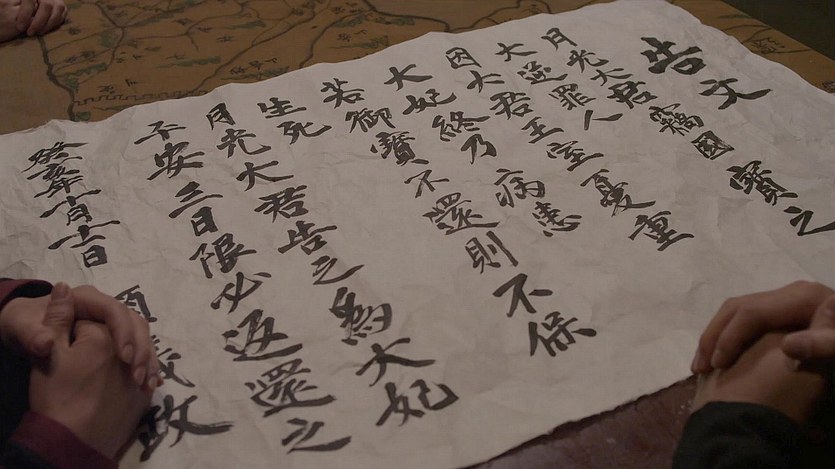 告文
月光大君竊國寶之
大逆罪人
因大君王室憂重
大妃終乃病患
若御寶不還則不保
生死
月光大君告之為大妃
安三日限必返還之
癸亥年十月十日
領議政